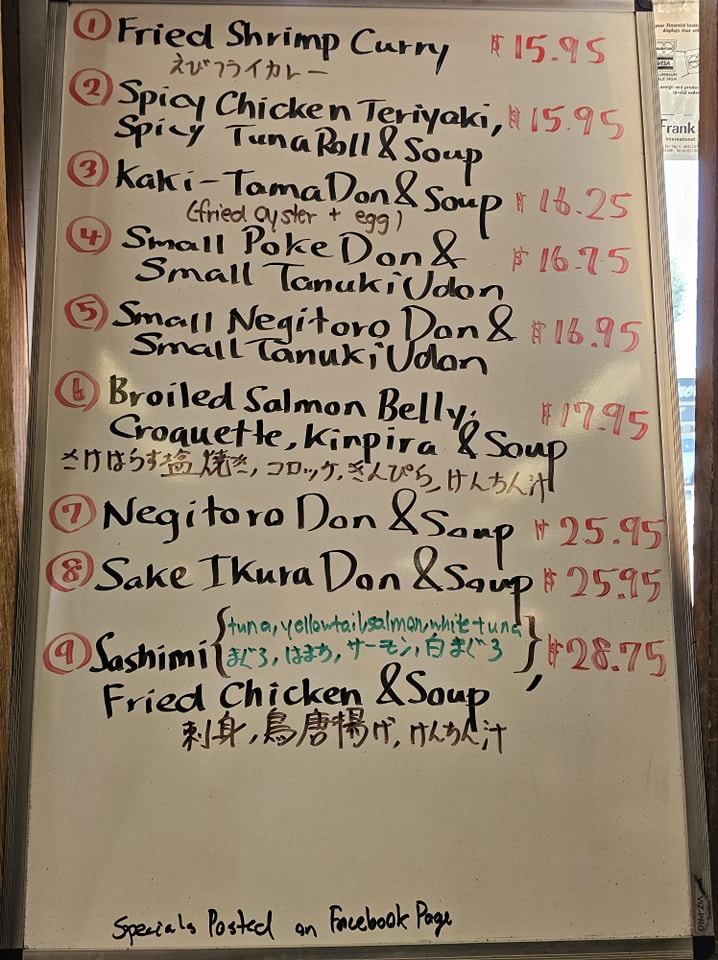 ① Fried Shrimp Curry $15.95
えびフライカレー
② Spicy Chicken Teriyaki, $15.95
Spicy Tuna Roll & Soup
③ Kaki-Tama Don & Soup $16.25
(fried oyster + egg)
④ Small Poke Don & $16.75
Small Tanuki Udon
⑤ Small Negitoro Don & $16.95
Small Tanuki Udon
⑥ Broiled Salmon Belly, $17.95
Croquette, Kinpira & Soup
さけはらす塩焼き, コロッケ, きんぴら, けんちん汁
⑦ Negitoro Don & Soup $25.95
⑧ Sake Ikura Don & Soup $25.95
⑨ Sashimi { tuna, yellowtail, salmon, white tuna } , $28.75
まぐろ, はまち, サーモン, 白まぐろ
Fried Chicken & Soup
刺身, 鳥唐揚げ, けんちん汁
Specials Posted on Facebook Page
VIZ-PRO
VISA
Frank